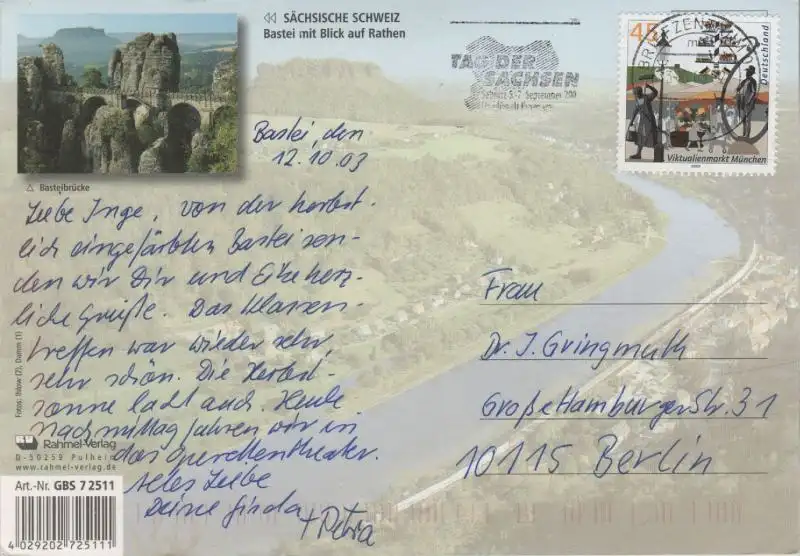 SÄCHSISCHE SCHWEIZ
Bastei mit Blick auf Rathen
Basteibrücke
TAG DER
SACHSEN
45
Deutschland
Viktualienmarkt München
Bastei, den
12.10.03
Liebe Inge, von der herbst-
lich eingefärbten Bastei sen-
den wir Dir und Eke herz-
liche Grüße. Das Klassen-
treffen war wieder sehr,
sehr schön. Die Herbst-
sonne lacht auch. Heute
Nachmittag fahren wir in
das Operettentheater.
Alles Liebe
Deine Gisela
+ Petra
Frau
Dr. I. Gringmuth
Große Hamburger Str. 31
10115 Berlin
Fotos: Ihlow (2), Damm (1)
Rahmel-Verlag
D-50259 Pulheim
www.rahmel-verlag.de
Art.-Nr. GBS 7 2511
4 029202 725111